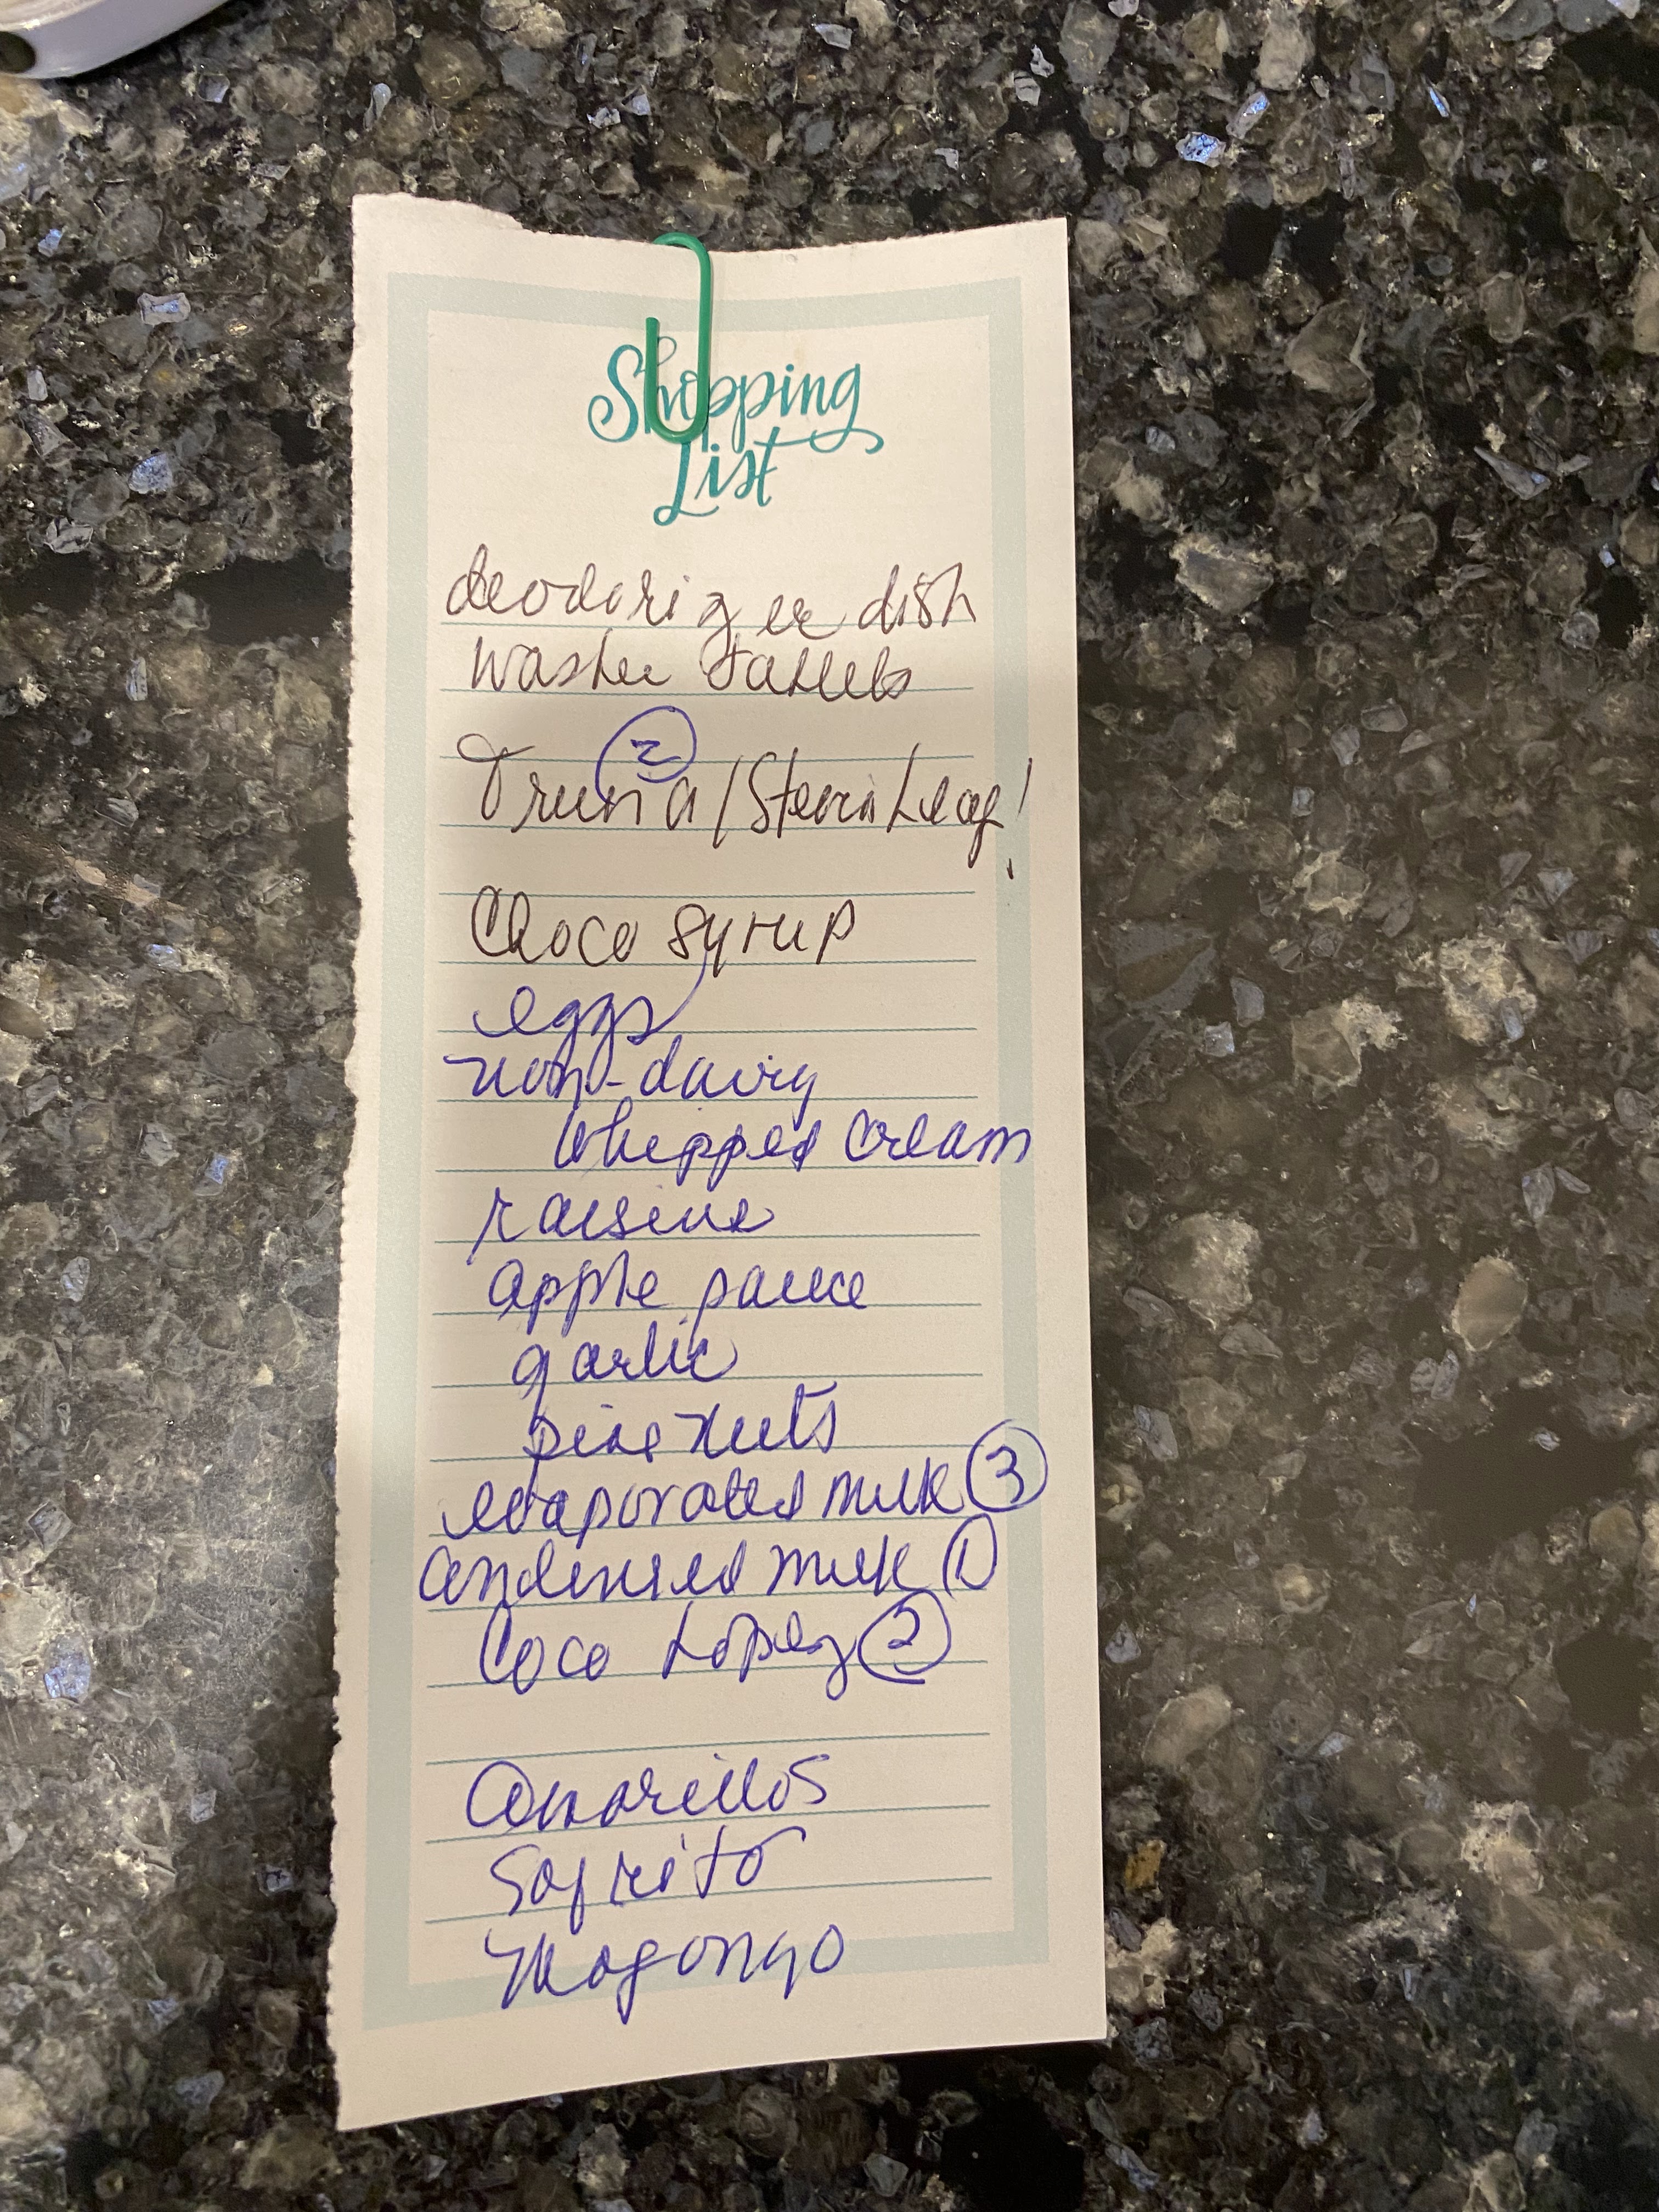 Shopping
List
deodorizer dish
washer tablets
2
Truvia/Stevia Leaf!
Choco syrup
eggs
non-dairy
whipped cream
raisins
apple sauce
garlic
pine nuts
evaporated milk 3
condensed milk 1
Coco Lopez 2
Amarillos
Sofrito